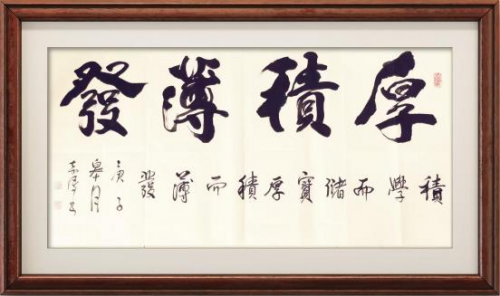 厚積薄發
積學而儲寶厚積而薄發
庚子